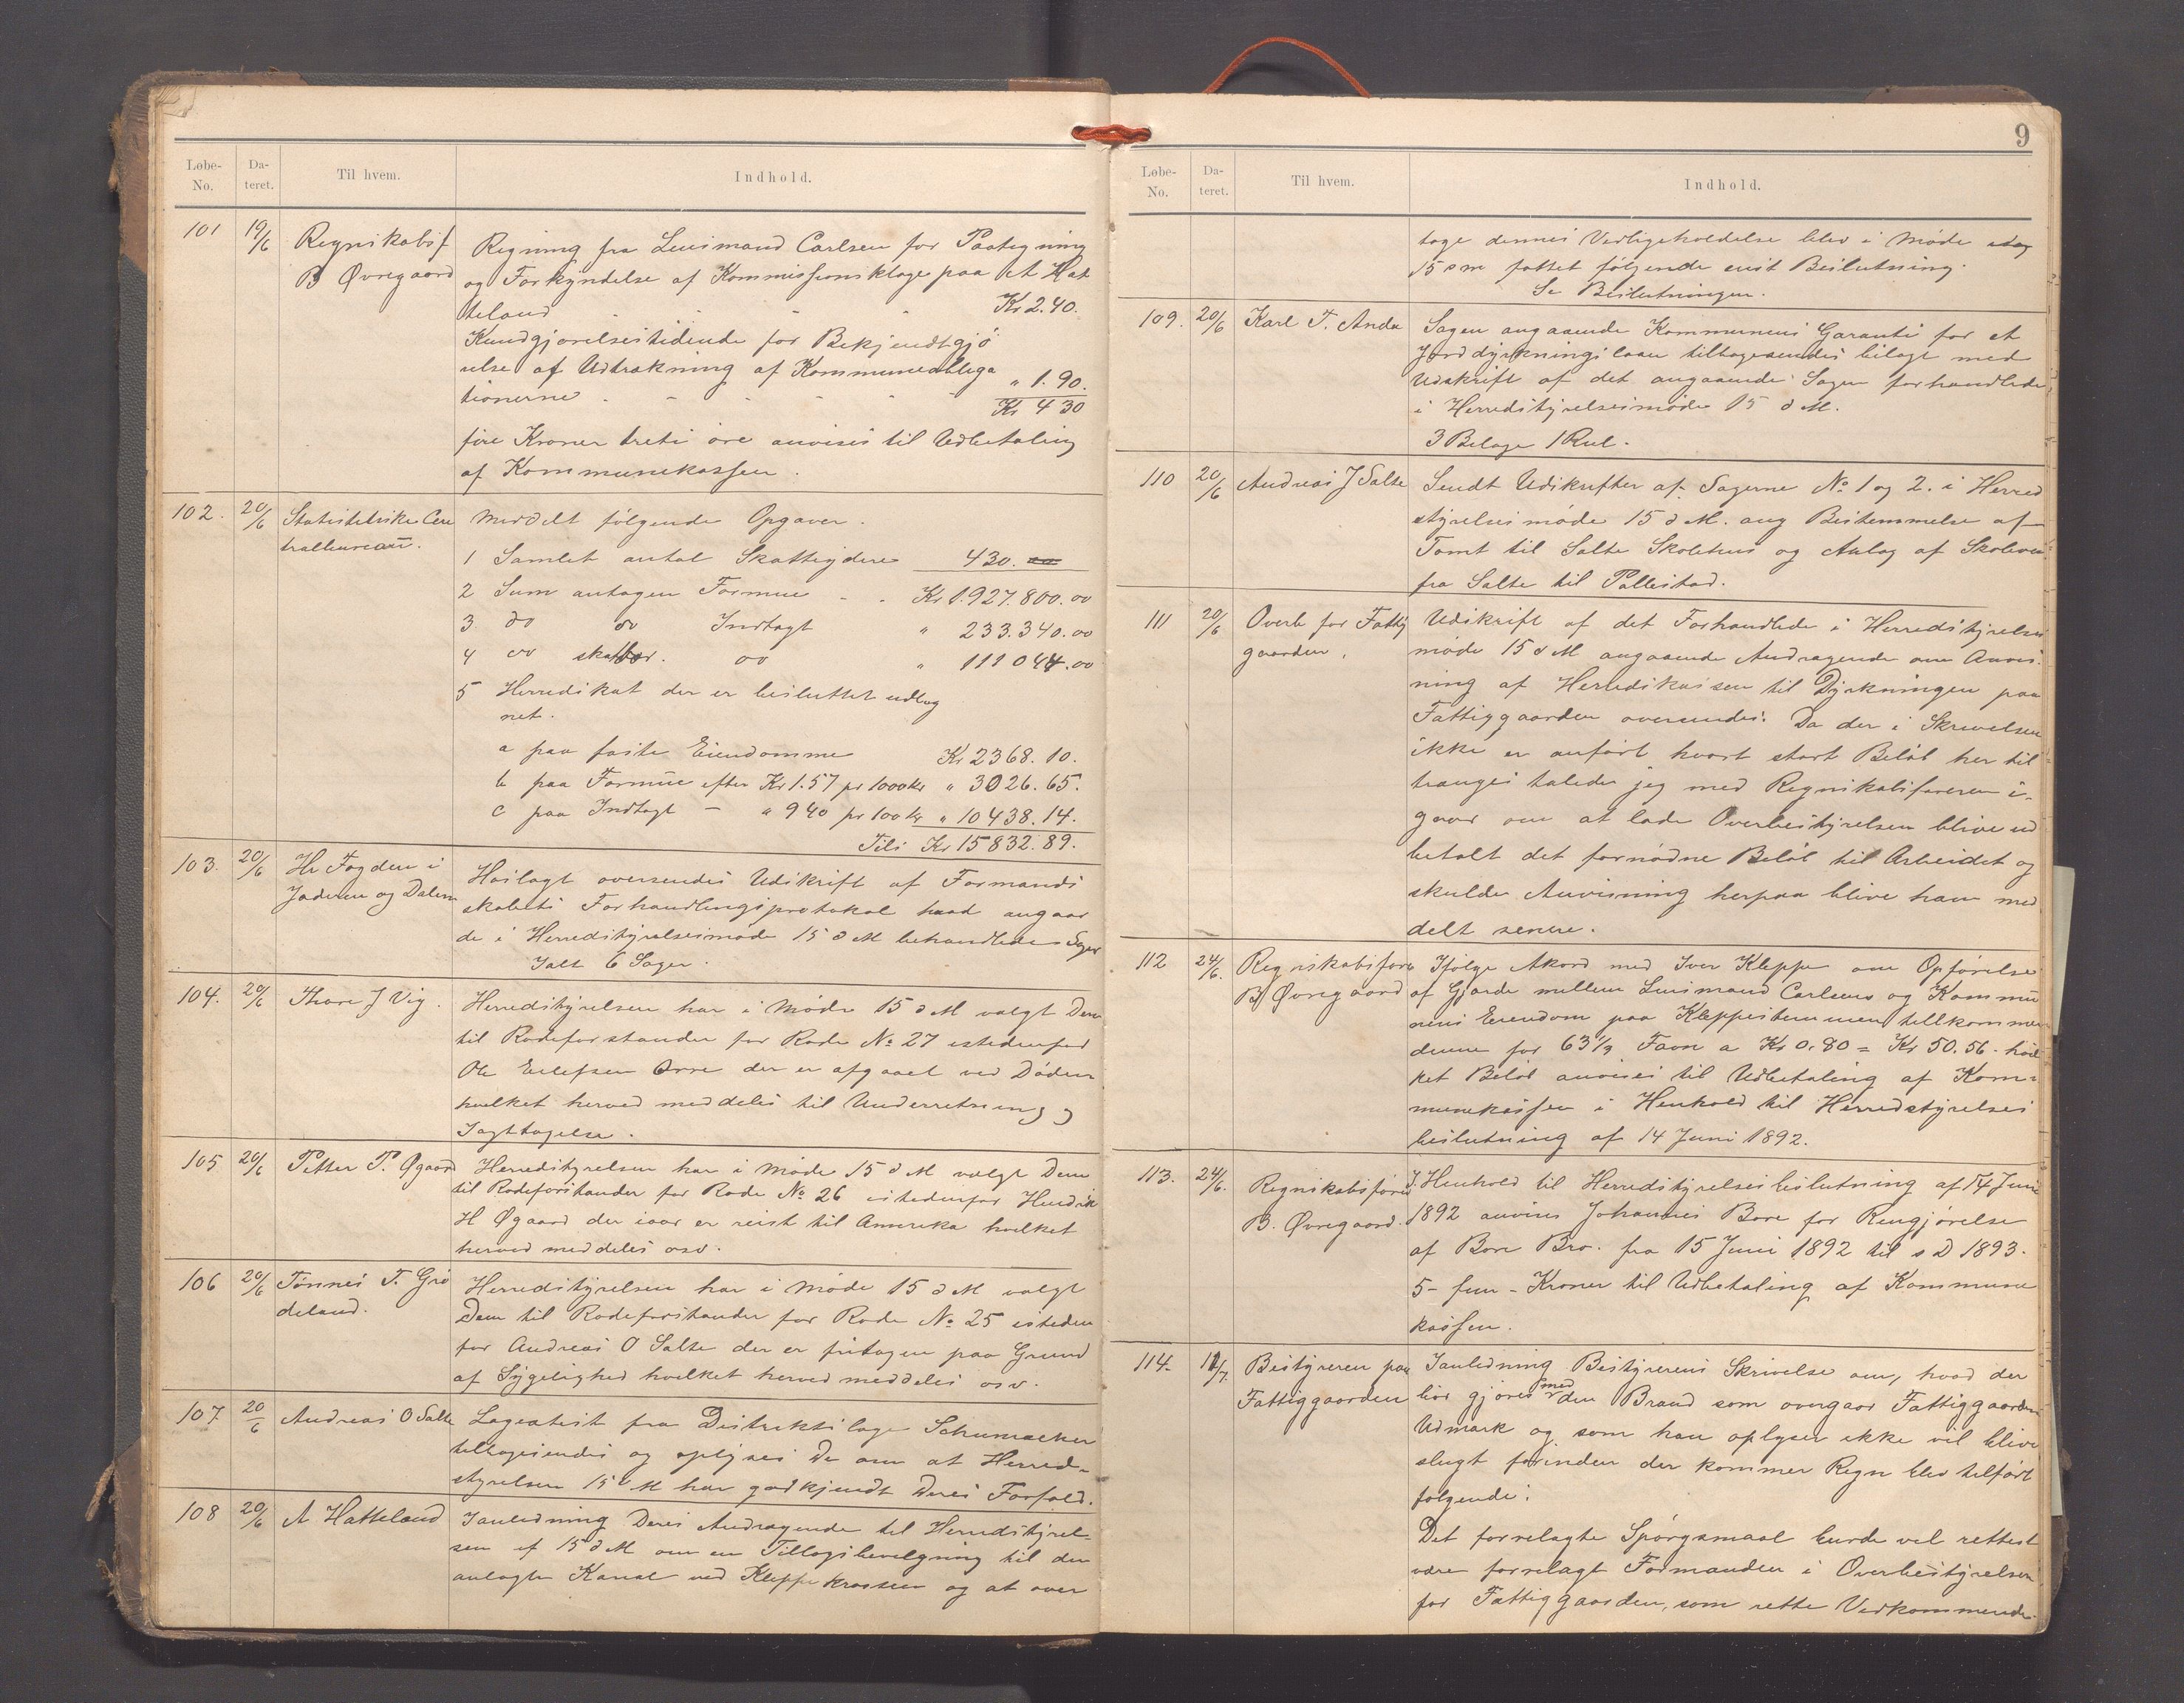 Løbe-
No.
Da-
teret.
Til hvem.
Indhold.
101
19/6
Regnskabsf
B Øvregaard
Regning fra Lensmand Carlsen for Paategning
og Forkyndelse af Kommissionsklage paa et Hat
teland
Kr 2.40.
Kundgjørelsestidende for Bekjendtgjø
relse af Udtrækning af Kommuneobliga
tionerne . - - - - -
" 1.90.
Kr 4 30
fire Kroner treti øre anvises til Udbetaling
af Kommunekassen.
102.
20/6
Statistiske Cen
tralbureau.
Meddelt følgende Opgaver.
1 Samlet antal Skatteydere 430.
2 Sum antagen Formue - . Kr 1.927.800.00
3. do do Indtægt " 233.340.00
4 do skatbar. do " 111044.00
5 Herredskat der er besluttet udlig
net.
a paa faste Eiendomme Kr 2368.10.
b paa Formue efter Kr 1.57 pr 1000 kr " 3026.65.
c paa Indtægt - " 9 40 pr 100 kr " 10438.14.
Tils Kr 15832.89.
103.
20/6
Hr Fogden i
Jæderen og Dalern
Hoslagt oversendes Udskrift af Formands
skabets Forhandlingsprotokol hvad angaar
de i Herredstyrelsesmøde 15 d M behandlede Sager
Ialt 6 Sager.
104.
20/6
Thore J Vig.
Herredstyrelsen har i Møde 15 d M valgt Dem
til Rodeforstander for Rode № 27 istedenfor
Ole Eilefsen Orre der er afgaaet ved Døden
hvilket herved meddeles til Underretning og
Iagttagelse.
105
20/6
Petter P. Øgaard
Herredstyrelsen har i Møde 15 d M valgt Dem
til Rodeforstander for Rode № 26 istedenfor Hendrik
H Øgaard der iaar er reist til Amerika hvilket
herved meddeles osv.
106
20/6
Tønnes T. Grø
deland.
Herredstyrelsen har i Møde 15 d M valgt
Dem til Rodeforstander for Rode № 25 isteden
for Andreas O Salte der er fritagen paa Grund
af Sygelighed hvilket herved meddeles osv.
107
20/6
Andreas O Salte
Lægeattest fra Distriktslæge Schumacker
tilbagesendes og oplyses De om at Herred-
styrelsen 15 d M har godkjendt Deres Forfald.
108
20/6
A Hatteland
Ianledning Deres Andragende til Herredstyrel-
sen af 15 d M om en Tillægsbevilgning til den
anlagte Kanal ved Kleppekrossen og at over
9
Løbe-
No.
Da-
teret.
Til hvem.
Indhold.
tage dennes Vedligeholdelse blev i Møde
15 d m fattet følgende enst Beslutning.
Se Beslutningen.
109.
20/6
Karl T. Anda
Sagen angaaende Kommunens Garanti for et
Jorddyrkningslaan tilbagesendes bilagt med
Udskrift af det angaaende Sagen forhandlede
i Herredstyrelsesmøde 15 d M.
3 Bilage 1 Rul.
110
20/6
Andreas J Salte
Sendt Udskrifter af Sagerne № 1 og 2. i Herred
styrelsesmøde 15 d M. ang Bestemmelse af
Tomt til Salte Skolehus og Anlæg af Skolevei
fra Salte til Pollestad.
111
20/6
Overb for Fattig
gaarden.
Udskrift af det Forhandlede i Herredstyrelses
møde 15 d M angaaende Andragende om Anvis-
ning af Herredskassen til Dyrkningen paa
Fattiggaarden oversendes. Da der i Skrivelsen
ikke er anført hvort stort Beløb her til
trænges talede jeg med Regnskabsføreren i-
gaar om at lade Overbestyrelsen blive ud
betalt det fornødne Beløb til Arbeidet og
skulde Anvisning herpaa blive ham med
delt senere.
112
24/6.
Regnskabsfører
B. Øvregaard
Ifølge Akord med Iver Kleppe om Opførelse
af Gjærde mellem Lensmand Carlsens og Kommu
nens Eiendom paa Kleppestemmen tillkommer
denne for 63 1/5 Favn a Kr 0.80 = Kr 50.56. hvil
ket Beløb anvises til Udbetaling af Kom-
munekassen i Henhold til Herredstyrelses
beslutning af 14 Juni 1892.
113.
24/6.
Regnskabsfører
B. Øvregaard.
I Henhold til Herredstyrelsesbeslutning af 14 Juni
1892 anvises Johannes Bore for Rengjørelse
af Bore Bro. fra 15 Juni 1892 til s D 1893.
5 - fem - Kroner til Udbetaling af Kommune
kassen.
114.
11/7.
Bestyreren paa
Fattiggaarden
Ianledning Bestyrerens Skrivelse om, hvad der
bør gjøres med den Brand som overgaar Fattiggaardens
Udmark og som han oplyser ikke vil blive
slugt førinden der kommer Regn blev tilført
følgende:
Det forrelagte Spørgsmaal burde vel rettest
være forrelagt Formanden i Overbestyrelsen
for Fattiggaarden, som rette Vedkommende.